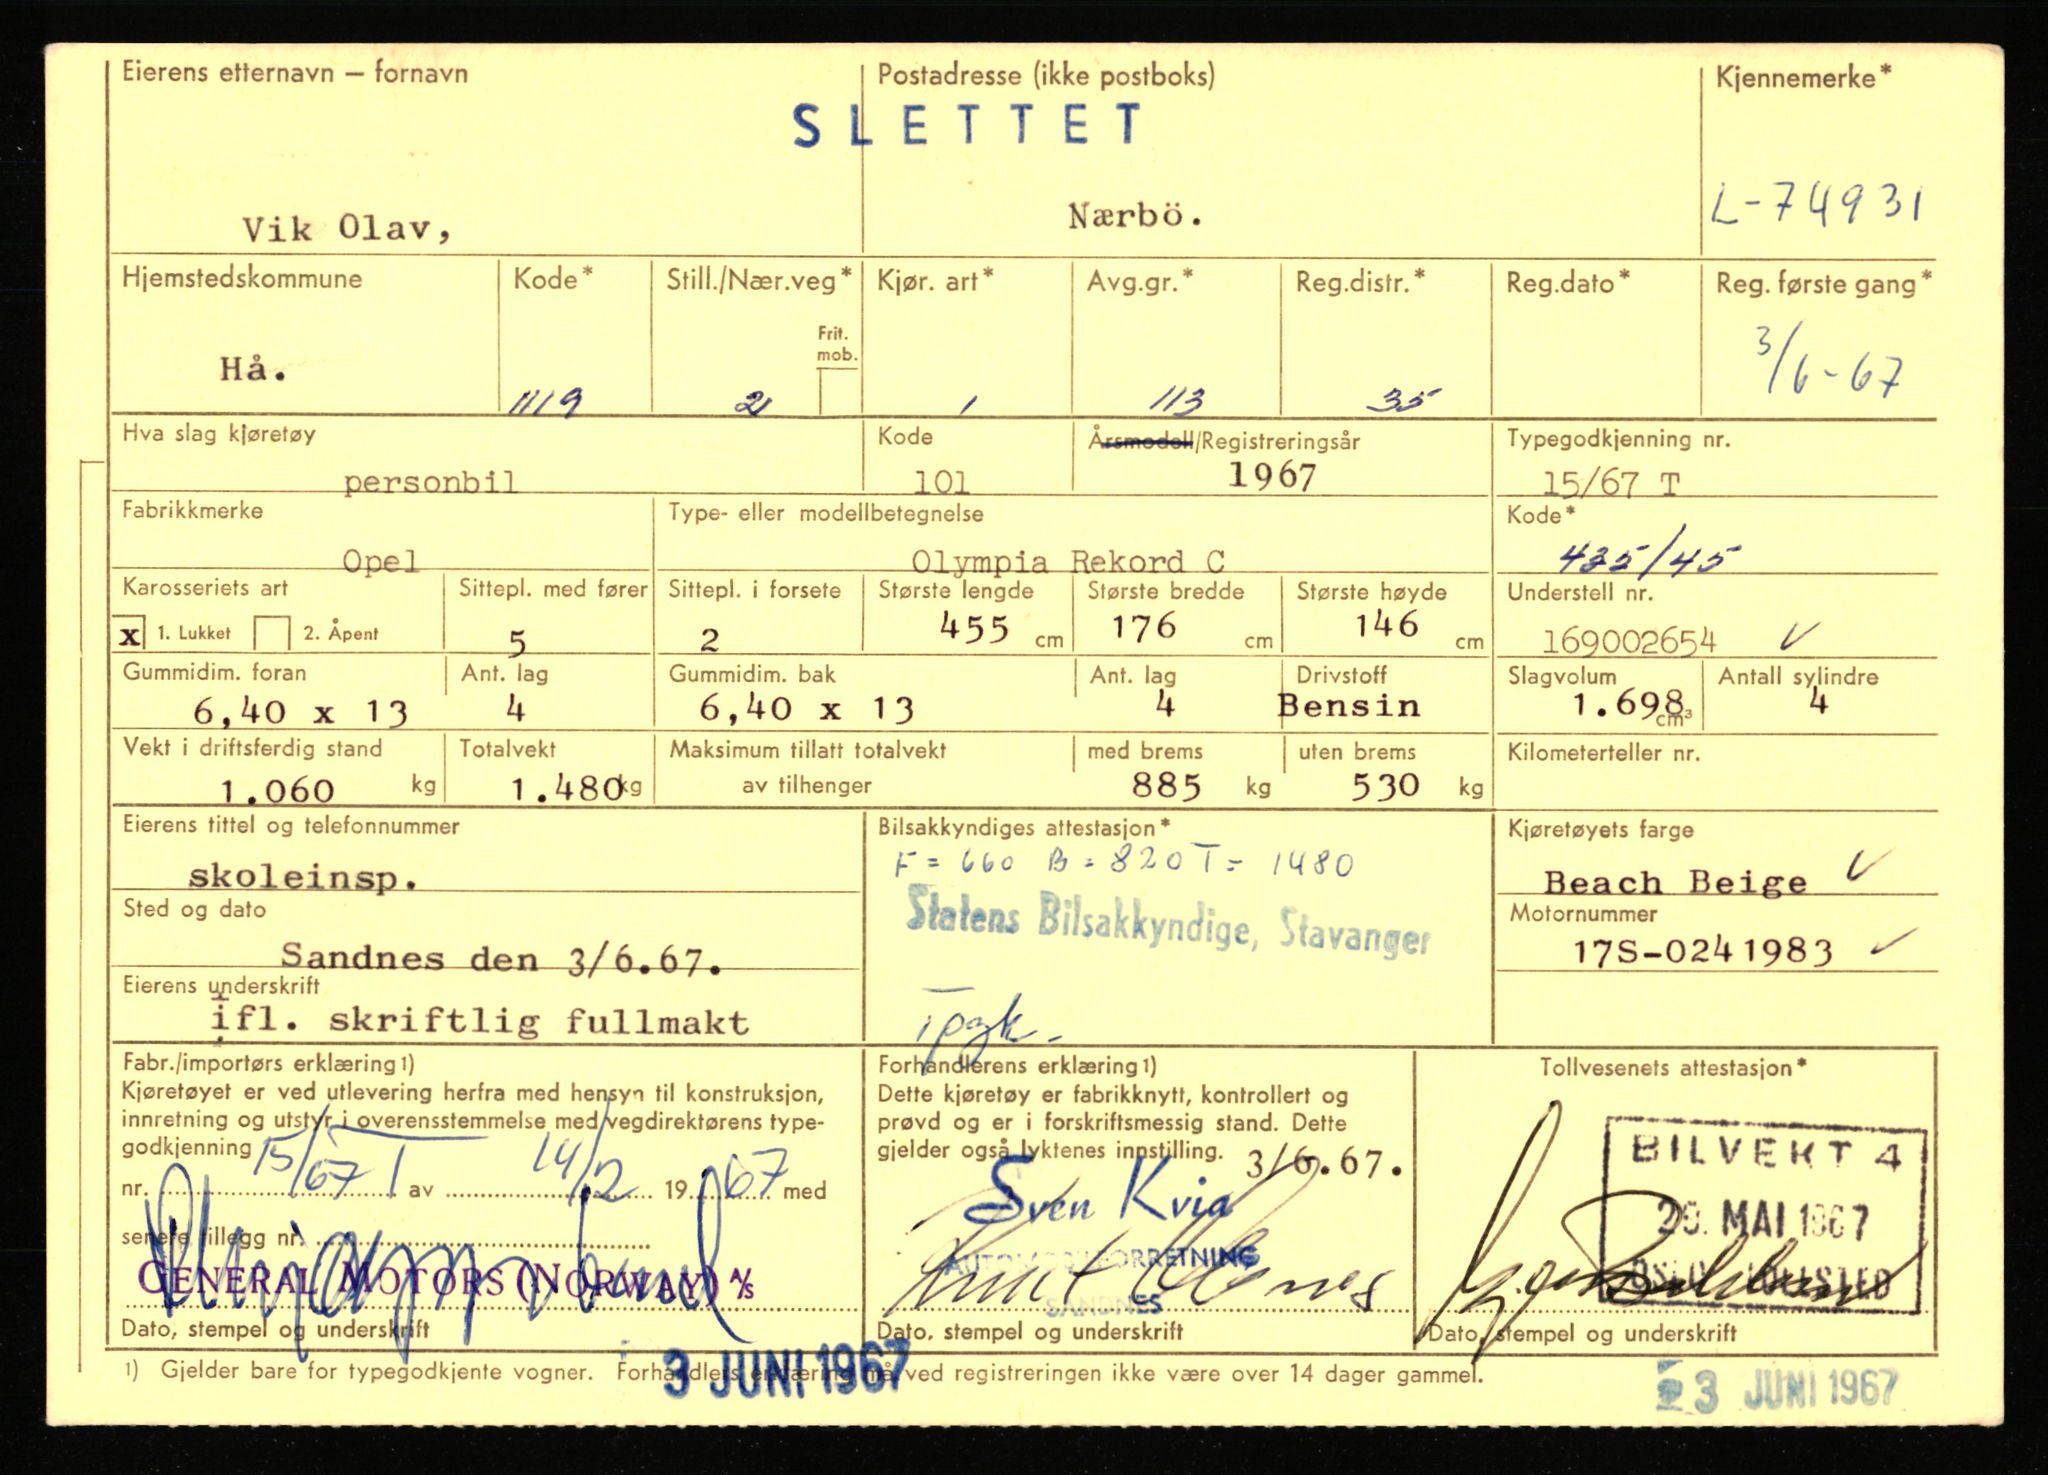 Eierens etternavn – fornavn
Postadresse (ikke postboks)
Kjennemerke*
SLETTET
Vik Olav,
Nærbö.
L-74931
Hjemstedskommune
Kode*
Still./Nær.veg*
Kjør. art*
Avg.gr.*
Reg.distr.*
Reg.dato*
Reg. første gang*
Frit. mob.
Hå.
1119
2
1
113
35
3/6-67
Hva slag kjøretøy
Kode
Årsmodell/Registreringsår
Typegodkjenning nr.
personbil
101
1967
15/67 T
Fabrikkmerke
Type- eller modellbetegnelse
Kode*
Opel
Olympia Rekord C
435/45
Karosseriets art
Sittepl. med fører
Sittepl. i forsete
Største lengde
Største bredde
Største høyde
Understell nr.
x 1. Lukket 2. Åpent
5
2
455 cm
176 cm
146 cm
169002654 ✓
Gummidim. foran
Ant. lag
Gummidim. bak
Ant. lag
Drivstoff
Slagvolum
Antall sylindre
6,40 x 13
4
6,40 x 13
4
Bensin
1.698 cm³
4
Vekt i driftsferdig stand
Totalvekt
Maksimum tillatt totalvekt
med brems
uten brems
Kilometerteller nr.
1.060 kg
1.480 kg
av tilhenger
885 kg
530 kg
Eierens tittel og telefonnummer
Bilsakkyndiges attestasjon*
Kjøretøyets farge
F = 660 B = 820 T = 1480
skoleinsp.
Beach Beige ✓
Sted og dato
Statens Bilsakkyndige, Stavanger
Motornummer
Sandnes den 3/6.67.
17S-0241983 ✓
Eierens underskrift
ifl. skriftlig fullmakt
Fabr./importørs erklæring 1)
Forhandlerens erklæring 1)
Tollvesenets attestasjon*
Kjøretøyet er ved utlevering herfra med hensyn til konstruksjon,
innretning og utstyr i overensstemmelse med vegdirektørens type-
godkjenning
nr. 15/67 T av 14/2 1967 med
senere tillegg nr.
Dette kjøretøy er fabrikknytt, kontrollert og
prøvd og er i forskriftsmessig stand. Dette
gjelder også lyktenes innstilling. 3/6.67.
Sven Kvia
AUTOMOBILFORRETNING
SANDNES
BILVEKT 4
29. MAI 1967
OSLO TOLLSTED
GENERAL MOTORS (NORWAY) A/S
Dato, stempel og underskrift
Dato, stempel og underskrift
Dato, stempel og underskrift
1) Gjelder bare for typegodkjente vogner. Forhandlers erklæring må ved registreringen ikke være over 14 dager gammel.
3 JUNI 1967
3 JUNI 1967